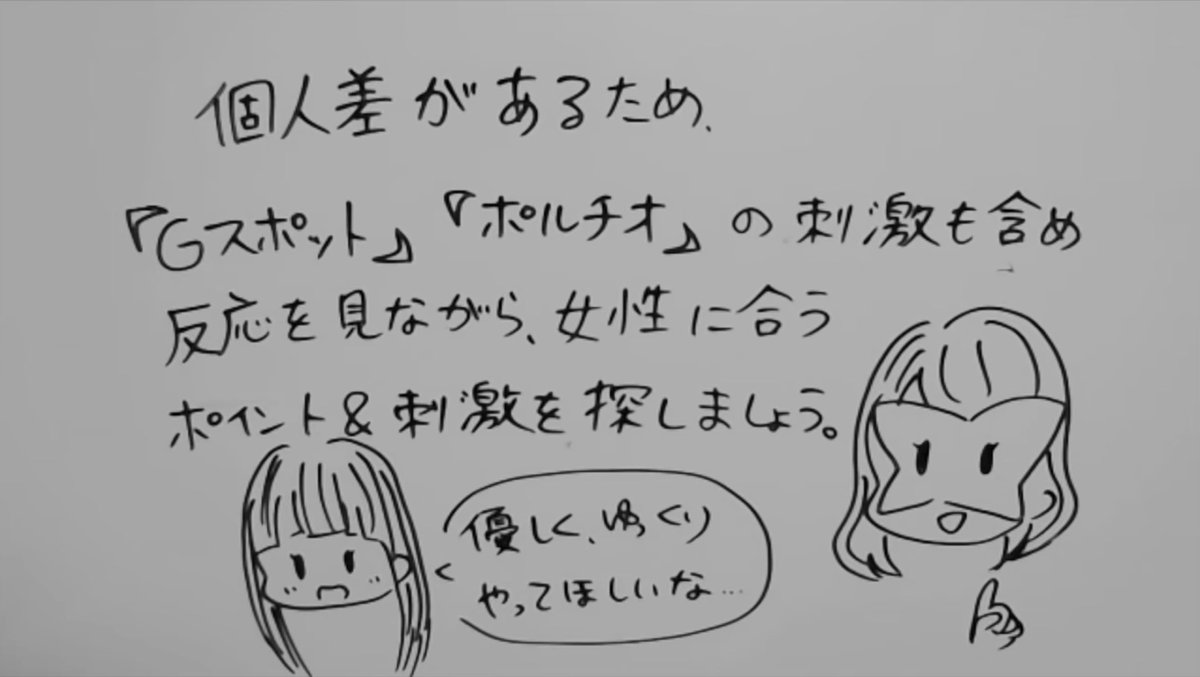 個人差があるため、
『Gスポット』『ポルチオ』の刺激も含め
反応を見ながら、女性に合う
ポイント&刺激を探しましょう。
優しく、ゆっくり
やってほしいな…